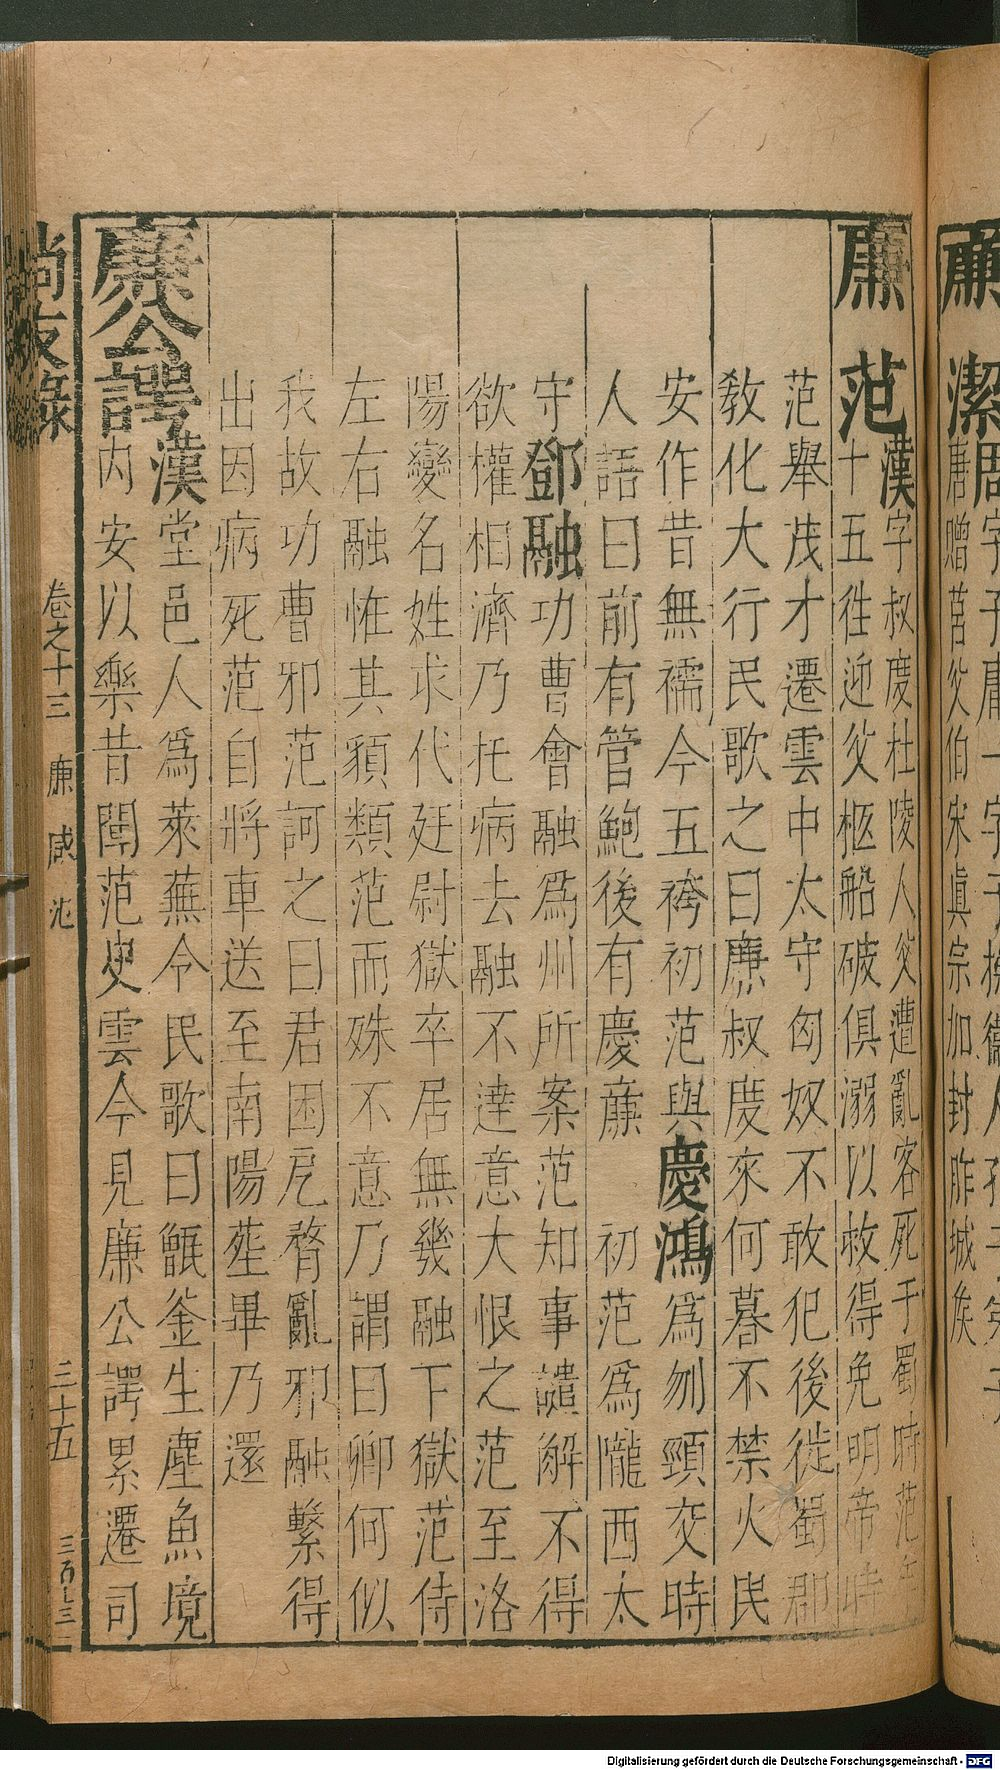 廉潔周字子庸一字子
唐贈莒父伯宋真宗加封胙城矦
廉范漢字叔慶杜陵人父遭亂客死于蜀時范年
十五徃迎父柩船破俱溺以救得免明帝時
范舉茂才遷雲中太守匈奴不敢犯後徙蜀郡
敎化大行民歌之曰廉叔慶來何暮不禁火民
安作昔無襦今五袴初范與慶鴻爲刎頸交時
人語曰前有管鮑後有慶廉　初范爲隴西太
守鄧融功曹會融爲州所案范知事譴解不得
欲權相濟乃托病去融不達意大恨之范至洛
陽變名姓求代廷尉獄卒居無幾融下獄范侍
左右融惟其類范而殊不意乃謂曰卿何似
我故功曹邪范訶之曰君困戹瞀亂邪融繫得
出因病死范自將車送至南陽塟畢乃還
廉公諤漢堂邑人爲萊蕪令民歌曰甑釜生塵魚境
内安以樂昔聞范史雲今見廉公諤累遷司
尚友錄　卷之十三　廉　咸　沈　三十五　三百七三
Digitalisierung gefördert durch die Deutsche Forschungsgemeinschaft - DFG